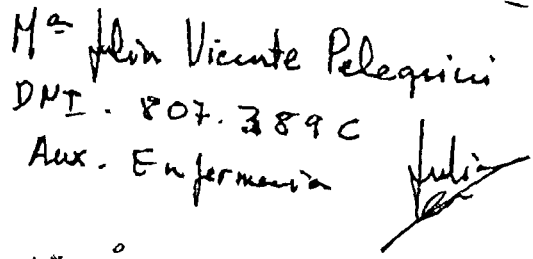 Mª Julia Vicente Pelegrini
DNI. 807.389 C
Aux. Enfermeria
Julia